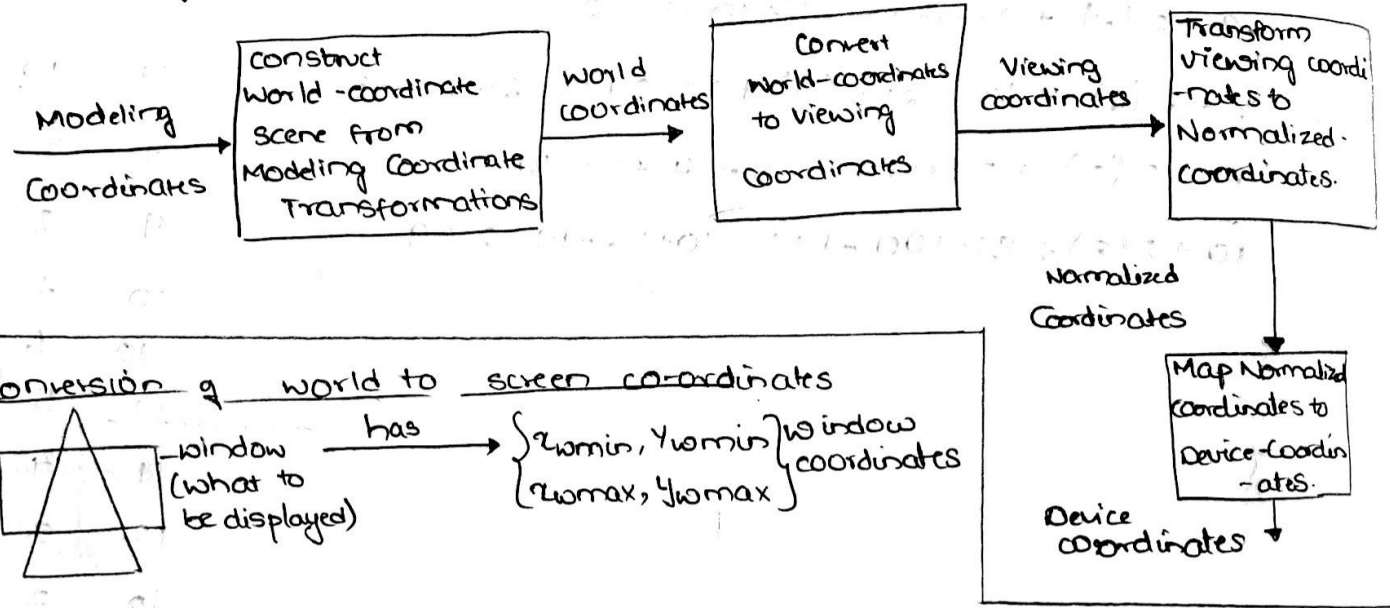 Modeling
Coordinates
construct
world-coordinate
scene from
Modeling Coordinate
Transformations
world
coordinates
Convert
world-coordinates
to viewing
coordinates
Viewing
coordinates
Transform
viewing coordi
-nates to
Normalized.
coordinates.
Normalized
Coordinates
Map Normalized
coordinates to
Device-Coordin
-ates.
Device
coordinates
onversion of world to screen co-ordinates
window
(what to
be displayed)
has
{xwmin, Ywmin} window
{xwmax, Ywmax} coordinates